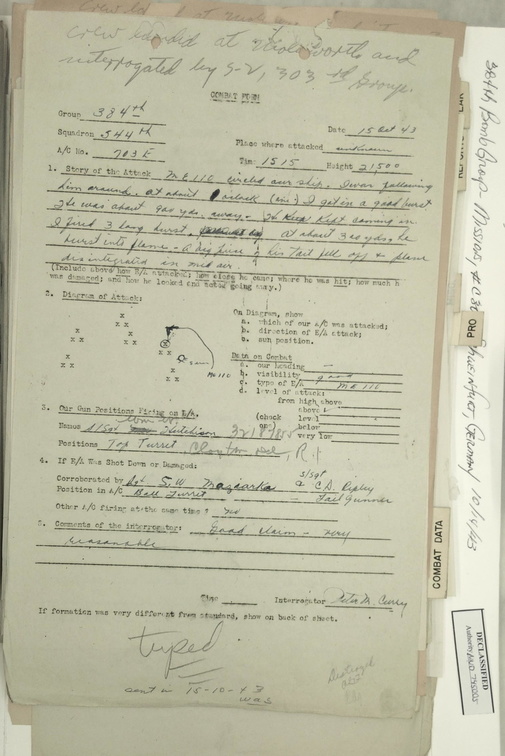 crew landed at Molesworth and
interrogated by S-2, 303 rd Group.
COMBAT FORM
Group 384th
Date 15 Oct 43
Squadron 544th
Place where attacked unknown
A/C No. 703 E
Time 1515 Height 21,500
1. Story of the Attack ME 110 circled our ship. I was following
him around. At about o'clock I got in a good burst
He was about 900 yds. away. He kept coming in.
I fired 3 long burst. at about 300 yds. he
burst into flame - a big piece of his tail fell off & plane
disintegrated in mid air.
(Include above how E/A attacked; how close he came; where he was hit; how much h
was damaged; and how he looked going away.)
2. Diagram of Attack:
On Diagram, show
a. which of our A/C was attacked;
b. direction of E/A attack;
c. sun position.
ME 110
Data on Combat
a. our heading —
b. visibility good
c. type of E/A ME 110
d. level of attack:
from high above
above
(check level
one) below
very low
3. Our Gun Positions Firing on E/A.
Names S/Sgt Wm. Hutchison 32187855
Positions Top Turret R.I
4. If E/A Was Shot Down or Damaged:
Corroborated by Sgt S.W. S/Sgt C.D. Ripley
Position in A/C Ball Turret Tail Gunner
Other A/C firing at the same time? yes
5. Comments of the interrogator: Good claim - very
reasonable
Time Interrogator Peter M. Curry
If formation was very different from standard, show on back of sheet.
typed
sent in 15-10-43
was
Destroyed
COMBAT DATA
PRO
384th Bomb Group - Mission
Schweinfurt, Germany 10/14/43
DECLASSIFIED
Authority NND 745005